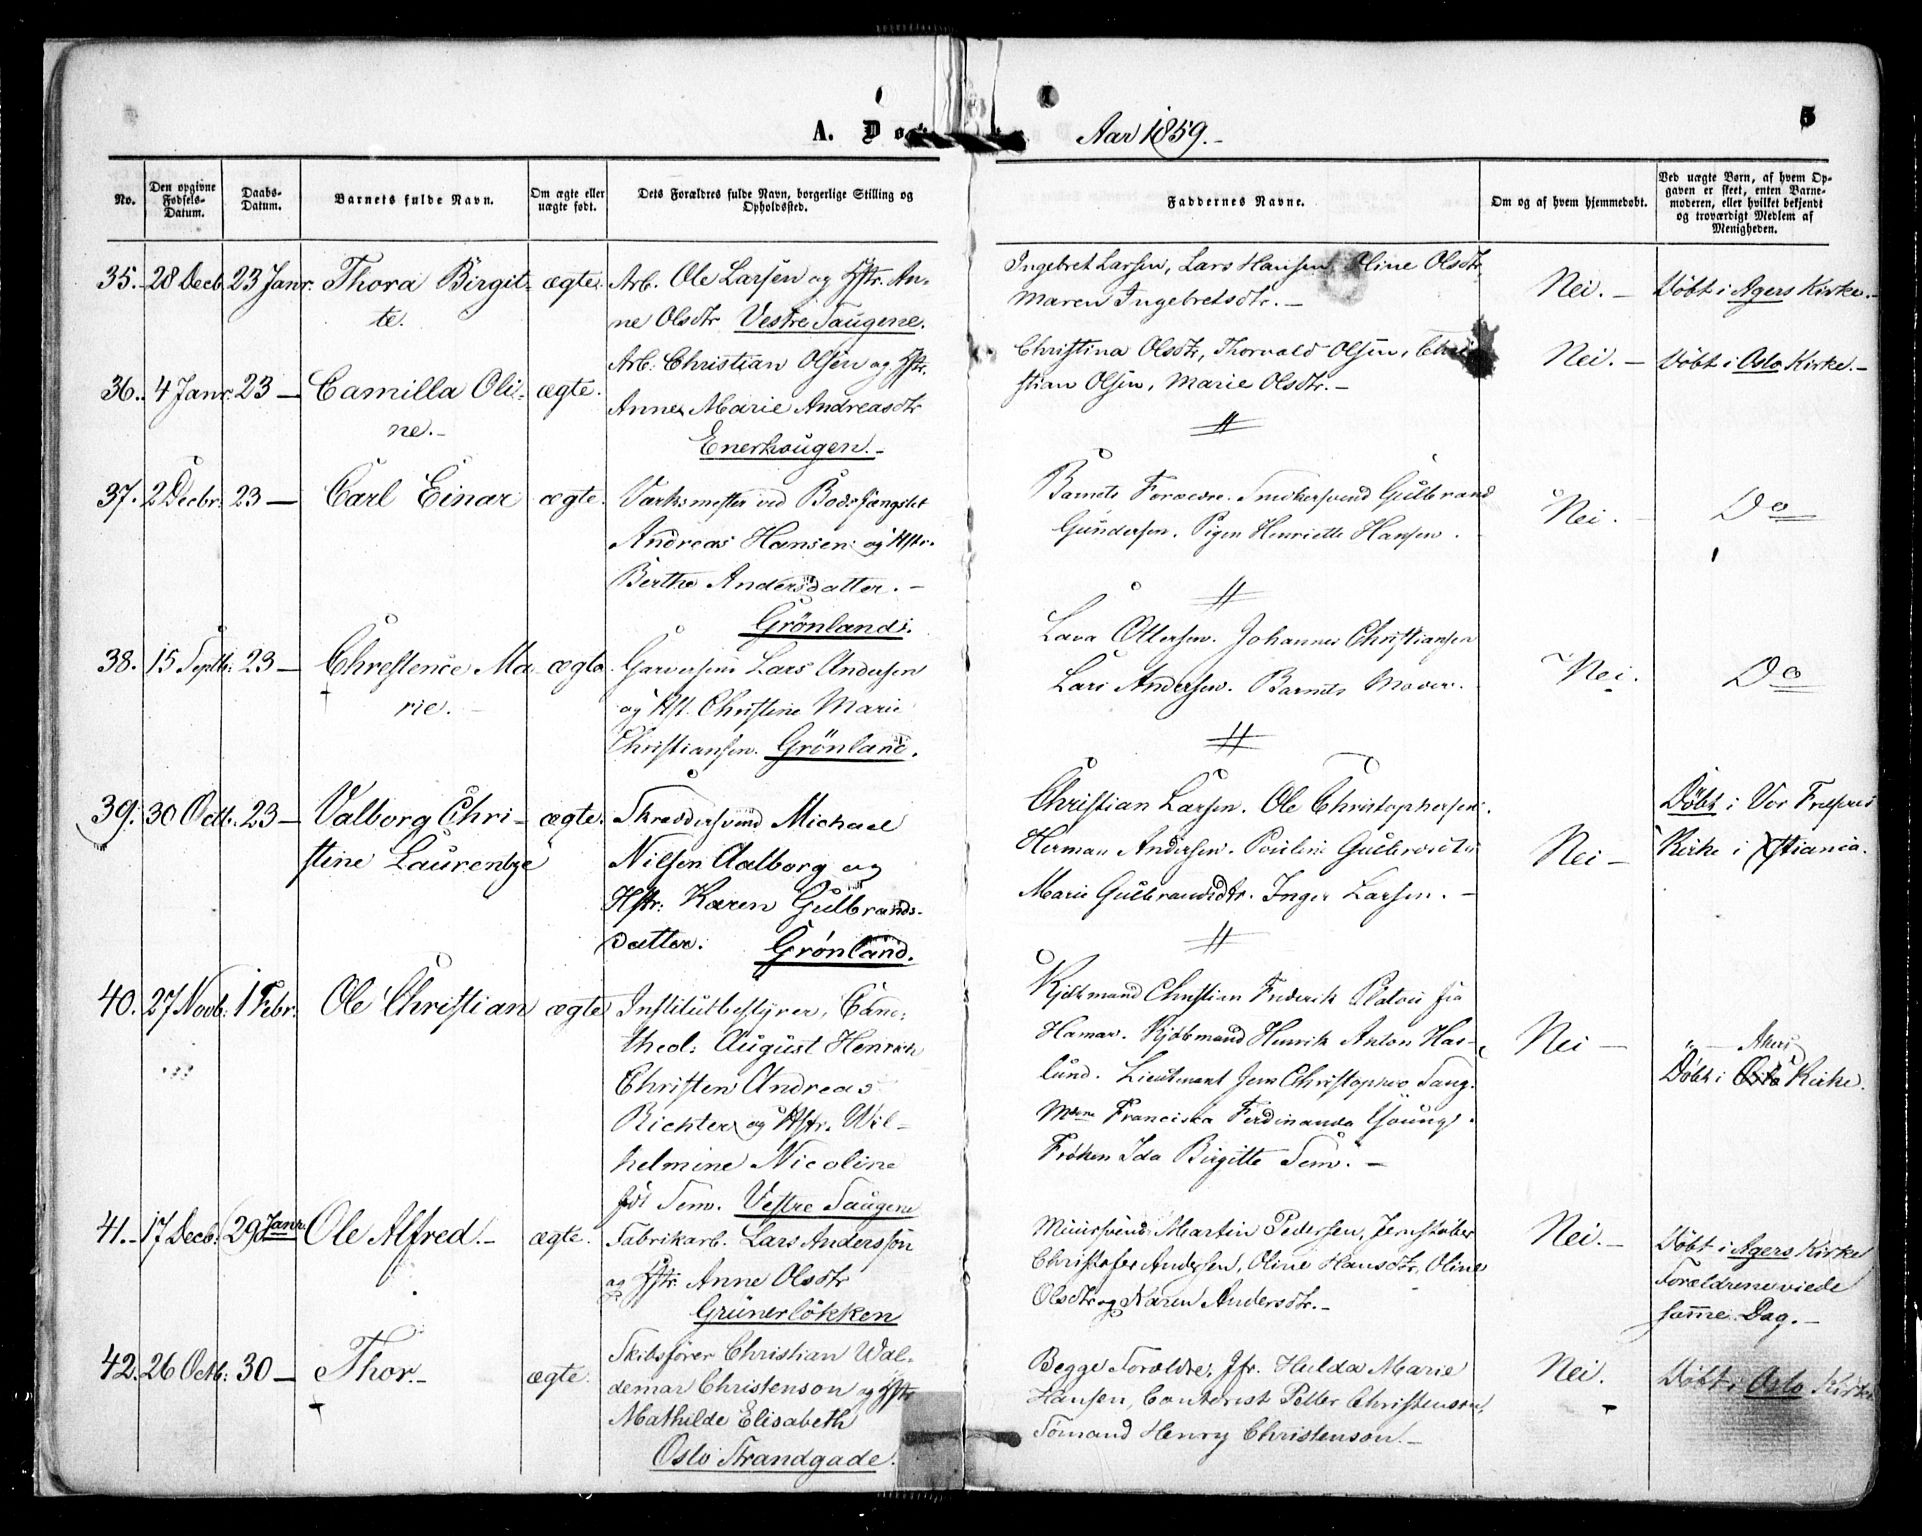 A. Dø
Aar 1859.-
5
No.
Den opgivne Fødsels-Datum.
Daabs-Datum.
Barnets fulde Navn.
Om ægte eller uægte født.
Dets Forældres fulde Navn, borgerlige Stilling og Opholdssted.
Faddernes Navne.
Om og af hvem hjemmedøbt.
Ved uægte Børn, af hvem Opgaven er skeet, enten Barnemoderen, eller hvilket bekjendt og troværdigt Medlem af Menigheden.
35. 28 Decb 23 Janr. Thora Birgit- ægte. Arb. Ole Larsen og Hstr. An-
te. ne Olsdtr Vestre Saugene.
Ingebret Larsen, Lars Hansen, Oline Olsdtr,
Maren Ingebretsdtr.-
Nei.- Döbt i Agers Kirke.-
36. 4 Janr. 23 — Camilla Oli- ægte. Arb: Christian Olsen og Hstr.
ne.- Anne Marie Andreasdtr
Enerhougen.-
Christina Olsdtr, Thorvald Olsen, Chri
stian Olsen, Marie Olsdtr.-
Nei.- Döbt i Oslo Kirke.-
37. 2 Decbr. 23 — Carl Einar ægte. Værksmester ved Bodsfængslet
Andreas Hansen og Hstr.
Berthe Andersdatter.-
Grönland.
Barnets Forældre. Snedkersvend Gulbrand
Gundersen. Pigen Henriette Hansen.
Nei. Do
38. 15 Septb: 23 — Chrestence Ma- ægte. Garversvend Lars Andersen
rie.- og Hst. Christine Marie
Christiansen. Grönland.
Lava Ottersen. Johannes Christiansen
Lars Andersen. Barnets Moder.
Nei. Do
39. 30 Octb. 23 — Valborg Chri- ægte. Skræddersvend Michael
stine Laurentze Nilsen Aalborg og
Hstr: Karen Gulbrands-
datter. Grønland.
Christian Larsen. Ole Christophersen.
Herman Andersen. Pouline Gulbrandsdtr
Marie Gulbrandsdtr. Inger Larsen.-
Nei — Döbt i Vor Frelsers
Kirke i Xstiania.
40. 27 Novb: 1 Febr. Ole Christian ægte Institutbestyrer, Cand:
theol: August Henrich
Christen Andreas
Richter og Hstr. Wil-
helmine Nicoline
født Sem. Vestre Saugene
Kjöbmand Christian Frederik Platou fra
Hamar. Kjöbmand Henrik Anton Has-
lund. Lieutenant Jens Christopher
Franciska Ferdinanda
Frøken Ida Birgitte Sem.-
Nei — Akers
Döbt i Oslo Kirke.
41.- 17 Decb: 29 Janr. Ole Alfred.- ægte. Fabrikarb. Lars Andersson
og Hstr. Anne Olsdtr
Grünerlökken
Muursvend Martin Pedersen, Jernstøber
Christofer Andersen, Oline Hansdtr, Oline
Olsdtr og Karen Andersdtr.-
Nei.- Döbt i Agers Kirke
Forældrene viede
samme Dag.-
42. 26 Octb: 30 — Thor.- ægte. Skibsfører Christian Wal-
demar Christenson og Hstr
Mathilde Elisabeth
Oslo Strandgade.
Begge Forældre, Jfr. Hulda Marie
Hansen, Contorist Peter Christenson,
Sömand Henry Christenson.-
Nei. Döbt i Oslo Kirke